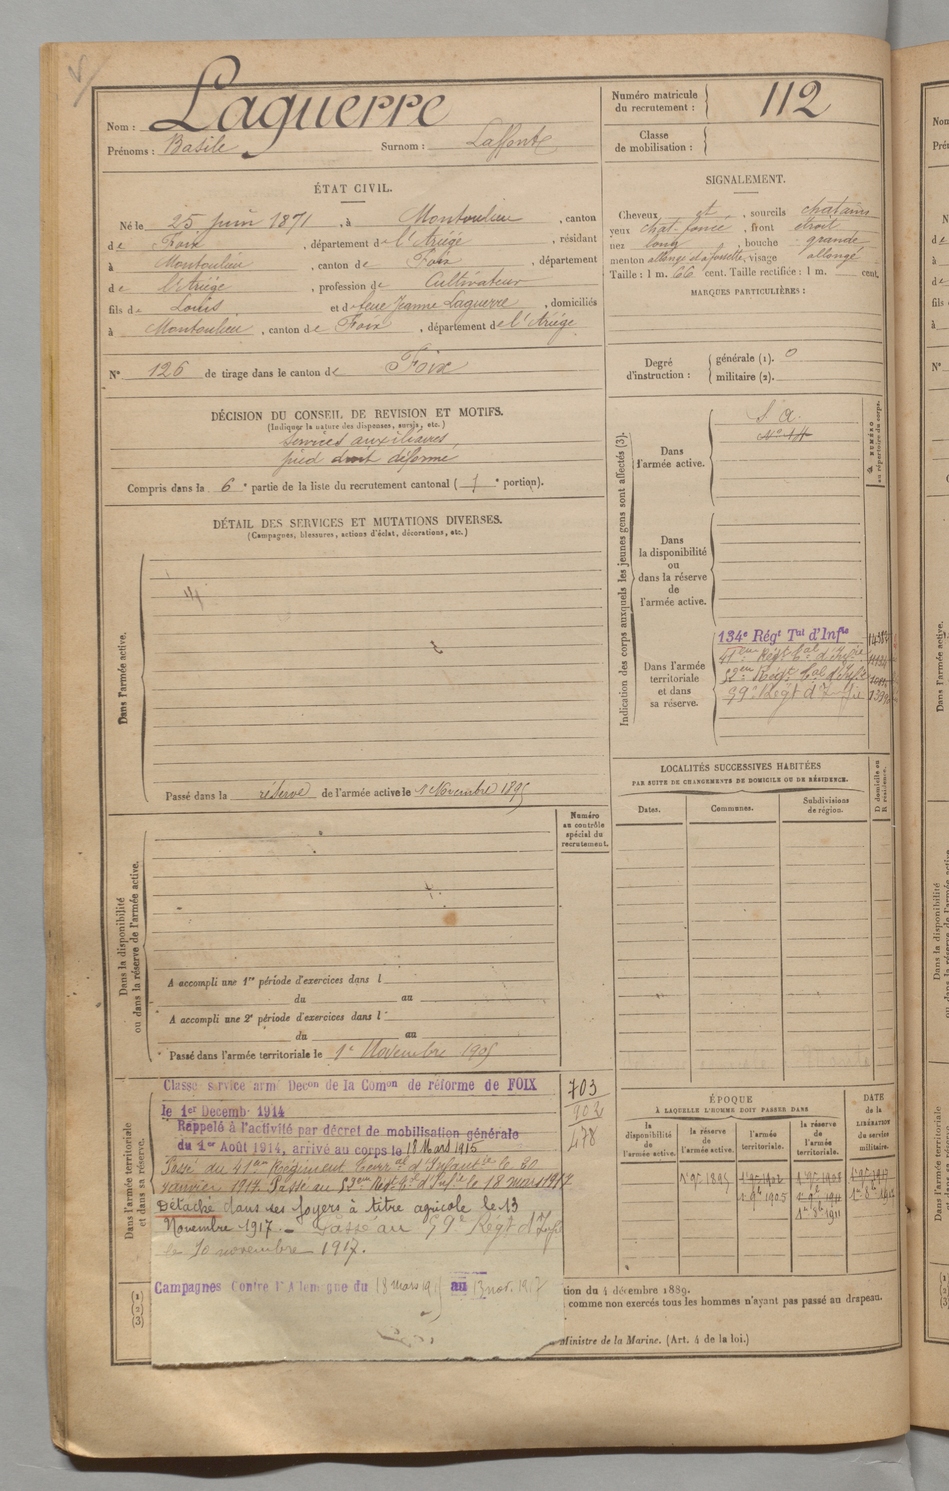 Nom : Laguerre
Prénoms : Basile Surnom : Laffont
Numéro matricule du recrutement : 112
Classe de mobilisation :
ÉTAT CIVIL.
Né le 25 juin 1871, à Montoulieu, canton
de Foix, département de l'Ariége, résidant
à Montoulieu, canton de Foix, département
de l'Ariége, profession de Cultivateur
fils de Louis et de feue Jeanne Laguerre, domiciliés
à Montoulieu, canton de Foix, département de l'Ariége
N° 126 de tirage dans le canton de Foix
SIGNALEMENT.
Cheveux et, sourcils chatains
yeux chat. foncé, front étroit
nez long, bouche grande
menton allongé et à fossette, visage allongé
Taille : 1 m. 66 cent. Taille rectifiée : 1 m. cent.
MARQUES PARTICULIÈRES :
Degré d'instruction : générale (1). 0
militaire (2).
DÉCISION DU CONSEIL DE REVISION ET MOTIFS.
(Indiquer la nature des dispenses, sursis, etc.)
Services auxiliaires,
pied droit déformé
Compris dans la 6e partie de la liste du recrutement cantonal ( portion).
DÉTAIL DES SERVICES ET MUTATIONS DIVERSES.
(Campagnes, blessures, actions d'éclat, décorations, etc.)
Dans l'armée active.
Passé dans la réserve de l'armée active le 1 Novembre 1895
Indication des corps auxquels les jeunes gens sont affectés (3).
NUMÉRO au répertoire du corps.
Dans l'armée active.
S. a.
N° 14
Dans la disponibilité ou dans la réserve de l'armée active.
Dans l'armée territoriale et dans sa réserve.
134e Régt Tal d'Infie
41em Régt tal d'Infie
52em Régt Tal d'Infie
59e Régt d'Infie
LOCALITÉS SUCCESSIVES HABITÉES
PAR SUITE DE CHANGEMENTS DE DOMICILE OU DE RÉSIDENCE.
Dates. Communes. Subdivisions de région.
D domicile ou R résidence.
Dans la disponibilité ou dans la réserve de l'armée active.
Numéro au contrôle spécial du recrutement.
A accompli une 1re période d'exercices dans l
du au
A accompli une 2e période d'exercices dans l
du au
Passé dans l'armée territoriale le 1e Novembre 1905
Dans l'armée territoriale et dans sa réserve.
Classé service armé Decon de la Comon de réforme de FOIX
le 1er Decemb. 1914
Rappelé à l'activité par décret de mobilisation générale
du 1er Août 1914, arrivé au corps le 18 Mars 1915
Passé au 41em Régiment terral d'Infanie le 20
janvier 1917. Passé au 53em Regt tal d'Infie le 18 mars 1917.
Détaché dans ses foyers à titre agricole le 13
Novembre 1917. – Passé au 59e Régt d'Infie
le 10 novembre 1917.
Campagnes Contre l'Allemagne du 18 mars 1915 au 13 nov. 1917
703
902
478
ÉPOQUE
À LAQUELLE L'HOMME DOIT PASSER DANS
la disponibilité de l'armée active. la réserve de l'armée active. l'armée territoriale. la réserve de l'armée territoriale.
DATE de la LIBÉRATION du service militaire.
(1)
(2)
(3)
tion du 4 décembre 1889.
comme non exercés tous les hommes n'ayant pas passé au drapeau.
Ministre de la Marine. (Art. 4 de la loi.)